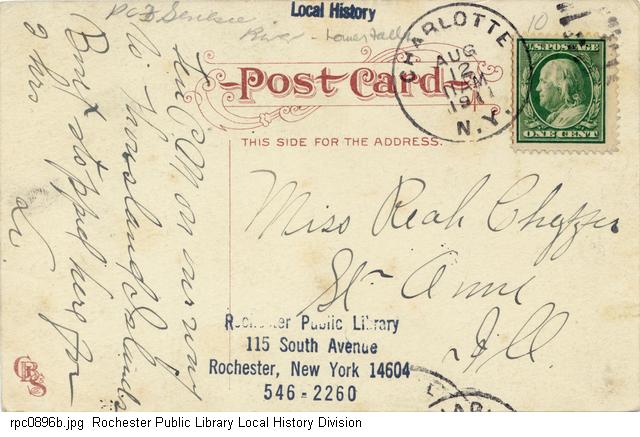 Local History
PCF Genesee
River - Lower Falls
10
CHARLOTTE
AUG
12
AM
1911
N.Y.
U.S. POSTAGE
ONE CENT
Post Card
THIS SIDE FOR THE ADDRESS.
Am on our way
to Thousand Islands
Boat stopped here for
2 hrs
Miss Reah
St. Anne
Ill.
Rochester Public Library
115 South Avenue
Rochester, New York 14604
546-2260
rpc0896b.jpg Rochester Public Library Local History Division